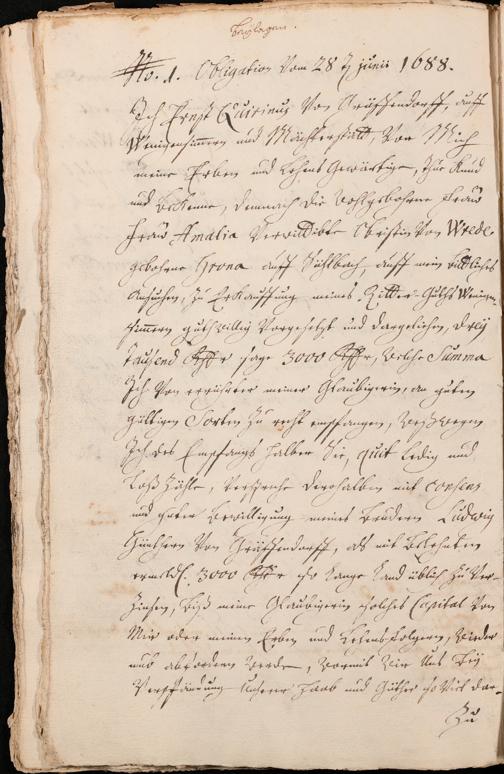 Beylagen.
No. 1. Obligation Vom 28 t. Junii 1688.
Ich Ernst Quirinus Von Gräffendorff, auff
Wenigensömmern und Mächterstädt, Vor Mich
meine Erben und Lehens Gewärtige, Thue Kund
und Bekenne, demnach die Wohlgebohrne Fraw
Fraw Amalia Verwittibte Christin Von Wrede,
gebohrne auff mein bittliches
Ansuchen, zu Erkauffung meines Ritter-Guths Wenigen-
sömmern guthwillig Vorgesetzt und dargeliehen, drey
tausend sage 3000 welche Summa
Ich Von erwehnter meiner Glaubigerin, an guten
gültigen Sorten zu recht empfangen, deßwegen
Ich des Empfangs halber Sie, quit ledig und
Loß Zähle, Verspreche derohalben mit consens
und guter bewilligung meines Brudern Ludwig
Günthern Von Gräffendorff, als mit Belehnten
ermeldt. 3000 so lange Land üblich zu Ver-
zinsen, biß meine Glaubigerin solches Capital Von
Mir oder meinen Erben und Lehensfolgern, wieder
und abfordern werde, wormit Wir Uns bey
Verpfändung Unserer Haab und Güther so Viel dar-
Zu